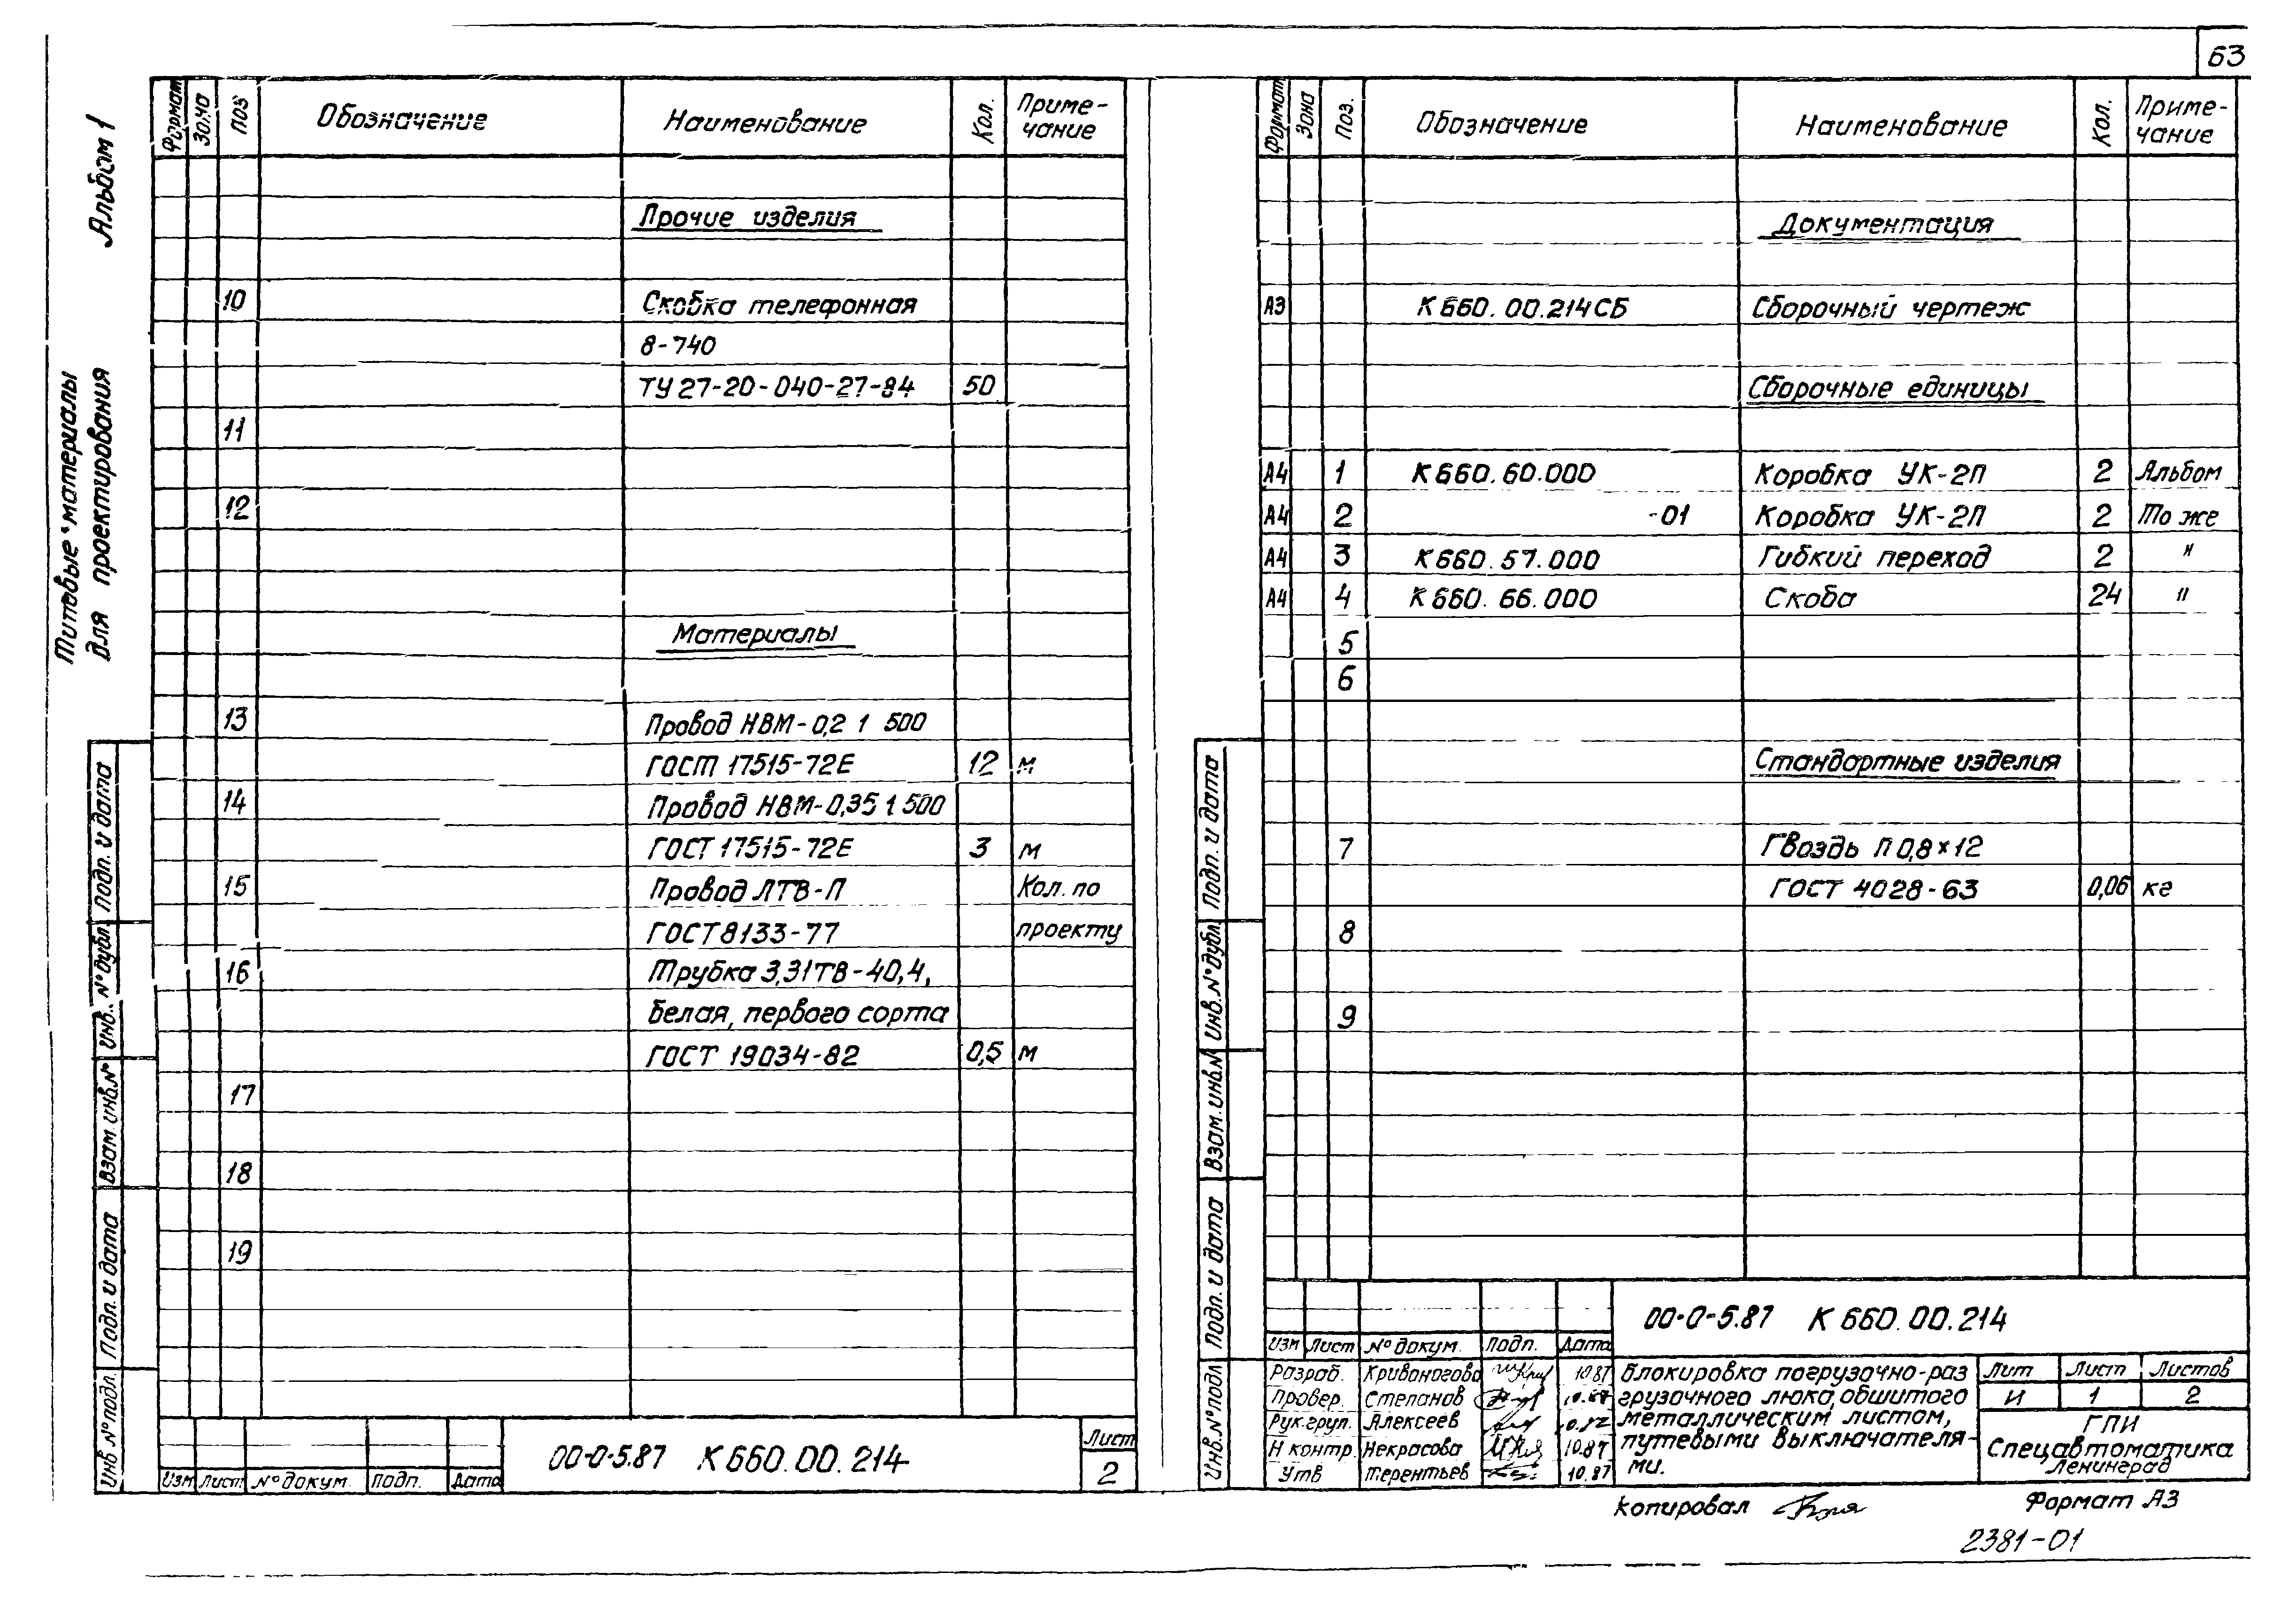 63
Альбом 1
Типовые материалы
для проектирования
Формат Зона Поз Обозначение Наименование Кол. Приме-
чание
Прочие изделия
10 Скобка телефонная
8-740
ТУ 27-20-040-27-84 50
11
12
Материалы
13 Провод НВМ-0,2 1 500
ГОСТ 17515-72Е 12 м
14 Провод НВМ-0,35 1 500
ГОСТ 17515-72Е 3 м
15 Провод ЛТВ-П Кол. по
ГОСТ 8133-77 проекту
16 Трубка 3,31ТВ-40,4,
белая, первого сорта
ГОСТ 19034-82 0,5 м
17
18
19
Подп. и дата
Инв. № дубл.
Взам. инв. №
Подп. и дата
Инв № подл.
Изм Лист № докум. Подп. Дата
00-0-5.87 К 660.00.214
Лист
2
Формат Зона Поз. Обозначение Наименование Кол. Приме-
чание
Документация
А3 К 660.00.214 СБ Сборочный чертеж
Сборочные единицы
А4 1 К 660.60.000 Коробка УК-2П 2 Альбом
А4 2 -01 Коробка УК-2П 2 То же
А4 3 К 660.57.000 Гибкий переход 2 "
А4 4 К 660.66.000 Скоба 24 "
5
6
Стандартные изделия
7 Гвоздь П 0,8×12
ГОСТ 4028-63 0,06 кг
8
9
Подп. и дата
Инв. № дубл.
Взам. инв. №
Подп. и дата
Инв. № подл
00-0-5.87 К 660.00.214
Изм Лист № докум. Подп. Дата
Разраб. Кривоногова 10.87
Провер. Степанов 10.87
Рук.груп. Алексеев
Н контр. Некрасова 10.87
Утв Терентьев 10.87
Блокировка погрузочно-раз
грузочного люка, обшитого
металлическим листом,
путевыми выключателя-
ми.
Лит Лист Листов
И 1 2
ГПИ
Спецавтоматика
Ленинград
Копировал
Формат А3
2381-01